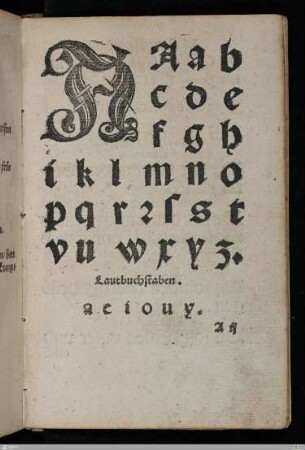 A A a b
c d e
f g h
i k l m n o
p q r ꝛ ſ s t
v u w x y z.
Lautbuchſtaben.
a e i o u y.
A ij